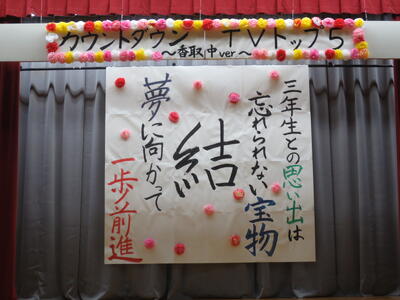 カウントダウン TVトップ5
～香取中ver～
三年生との思い出は
忘れられない宝物
結
夢に向かって
一歩前進